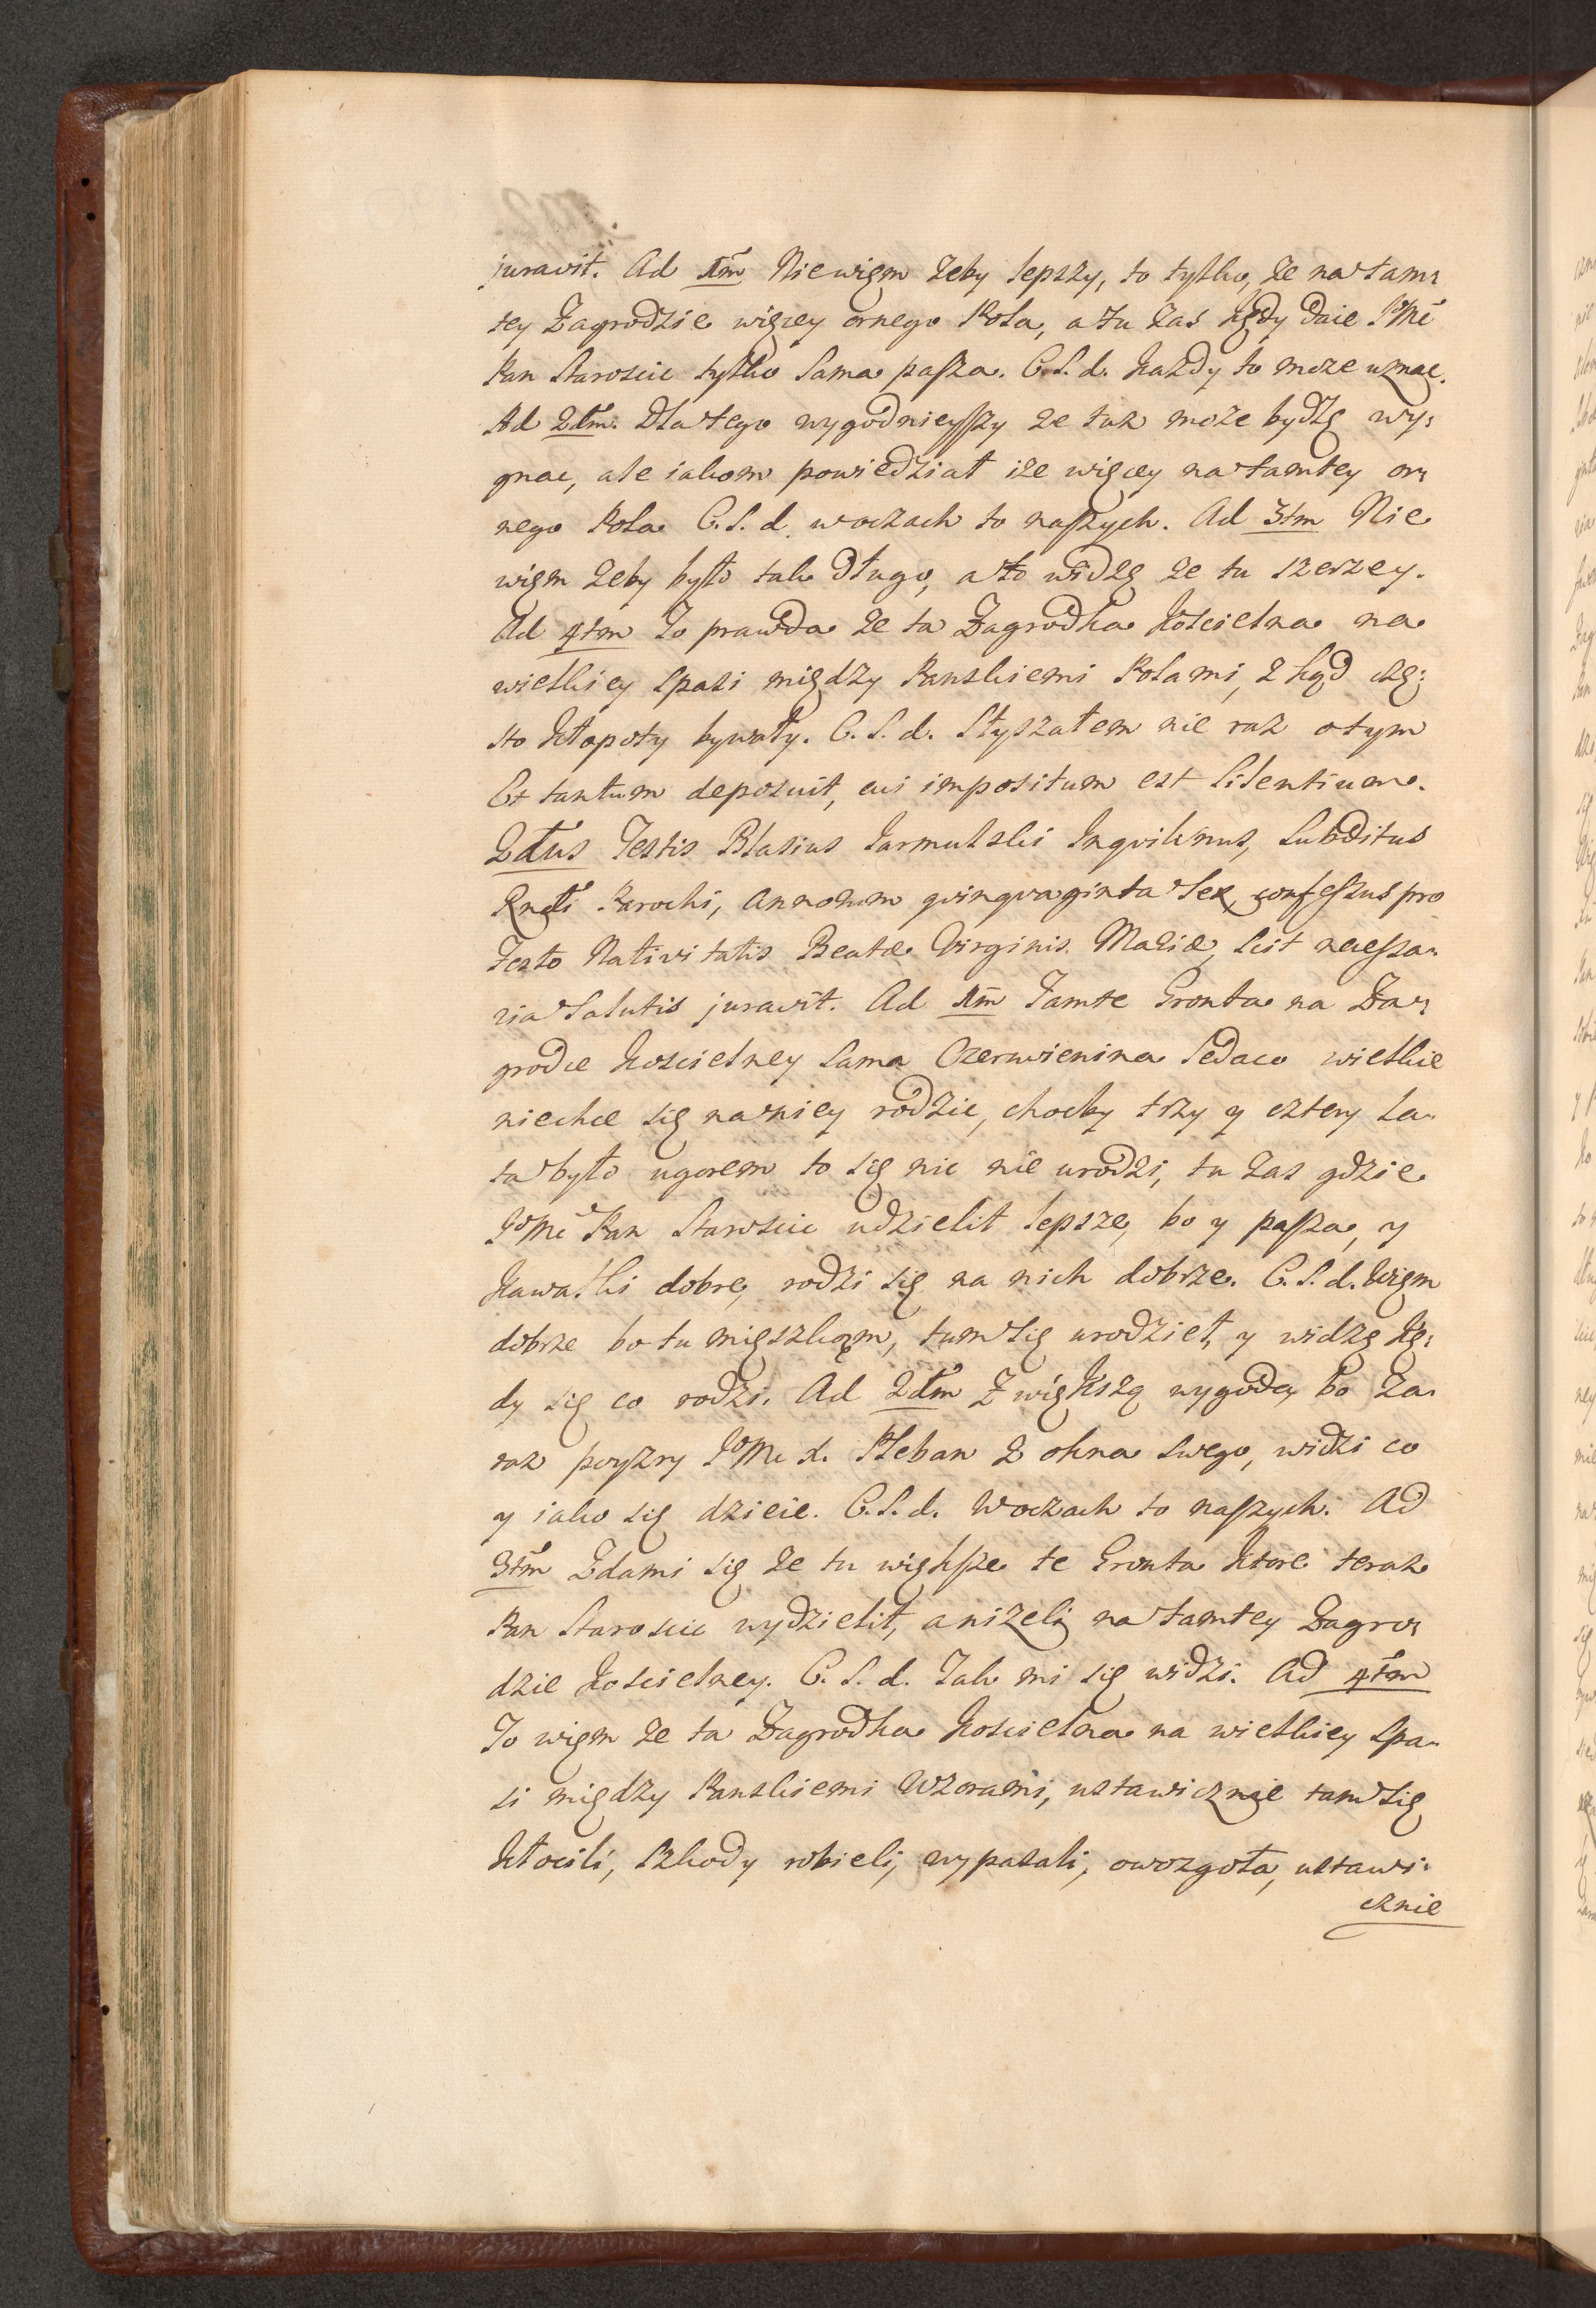 juravit. Ad 1m̃ Niewięm żeby lepszy, to tylko, że na tam:
tey Zagrodzie więcey ornego Pola, a tu zas kędy daie JoMć
Pan Staroscic tylko sama pasza. C.S.d. Kazdy to moze uznac.
Ad 2dm̃. Dla tego wygodnieyszy ze tuz może bydlę wy:
gnac, ale iakom powiedział iże więcey na tamtey or:
nego Pola C.S.d. woczach to naszych. Ad 3tm Nie
więm żeby było tak długo, a to widzę że tu szerzey.
Ad 4tm To prawda że ta Zagrodka Koscielna na
wielkiey spasi między Panskiemi Polami, z kąd czę:
sto kłopoty bywały. C.S.d. Słyszałem nie raz o tym
Et tantum deposuit, cui impositum est silentium.
2dus Testis Blasius Jarmulski Inqvilinus, subditus
Rndi Parochi, annorum qvinqvaginta sex, confessus pro
Festo Nativitatis Beatæ Virginis Mariæ, scit necessa-
ria salutis juravit. Ad 1m̃ Tamte Gronta na Za:
grodce Koscielney sama Czerwienina Ledaco wielkie
niechce się na niey rodzic, chocby trzy y cztery la-
ta było ugorem to się nic nie urodzi, tu zas gdzie
JoMć Pan Staroscic udzielił lepsze, bo y pasza, y
Kawałki dobre, rodzi się na nich dobrze. C.S.d. Więm
dobrze bo tu mięszkąm, tum się urodzieł, y widzę kę:
dy się co rodzi. Ad 2dm̃ Z większą wygodą, bo za-
raz poyzry JoMć X. Pleban z okna swego, widzi co
y iako się dzieie. C.S.d. Woczach to naszych. Ad
3tm̃ Zdami się że tu większe te Gronta ktore teraz
Pan Staroscic wydzielił, a niżeli na tamtey Zagro:
dzie Koscielney. C.S.d. Tak mi się widzi. Ad 4tm̃
To więm że ta Zagrodka Koscielna na wielkiey spa-
si między Panskiemi Wzorami, ustawicznie tam się
kłocili, szkody robieli, wypasali, owozgoła, ustawi-
cznie